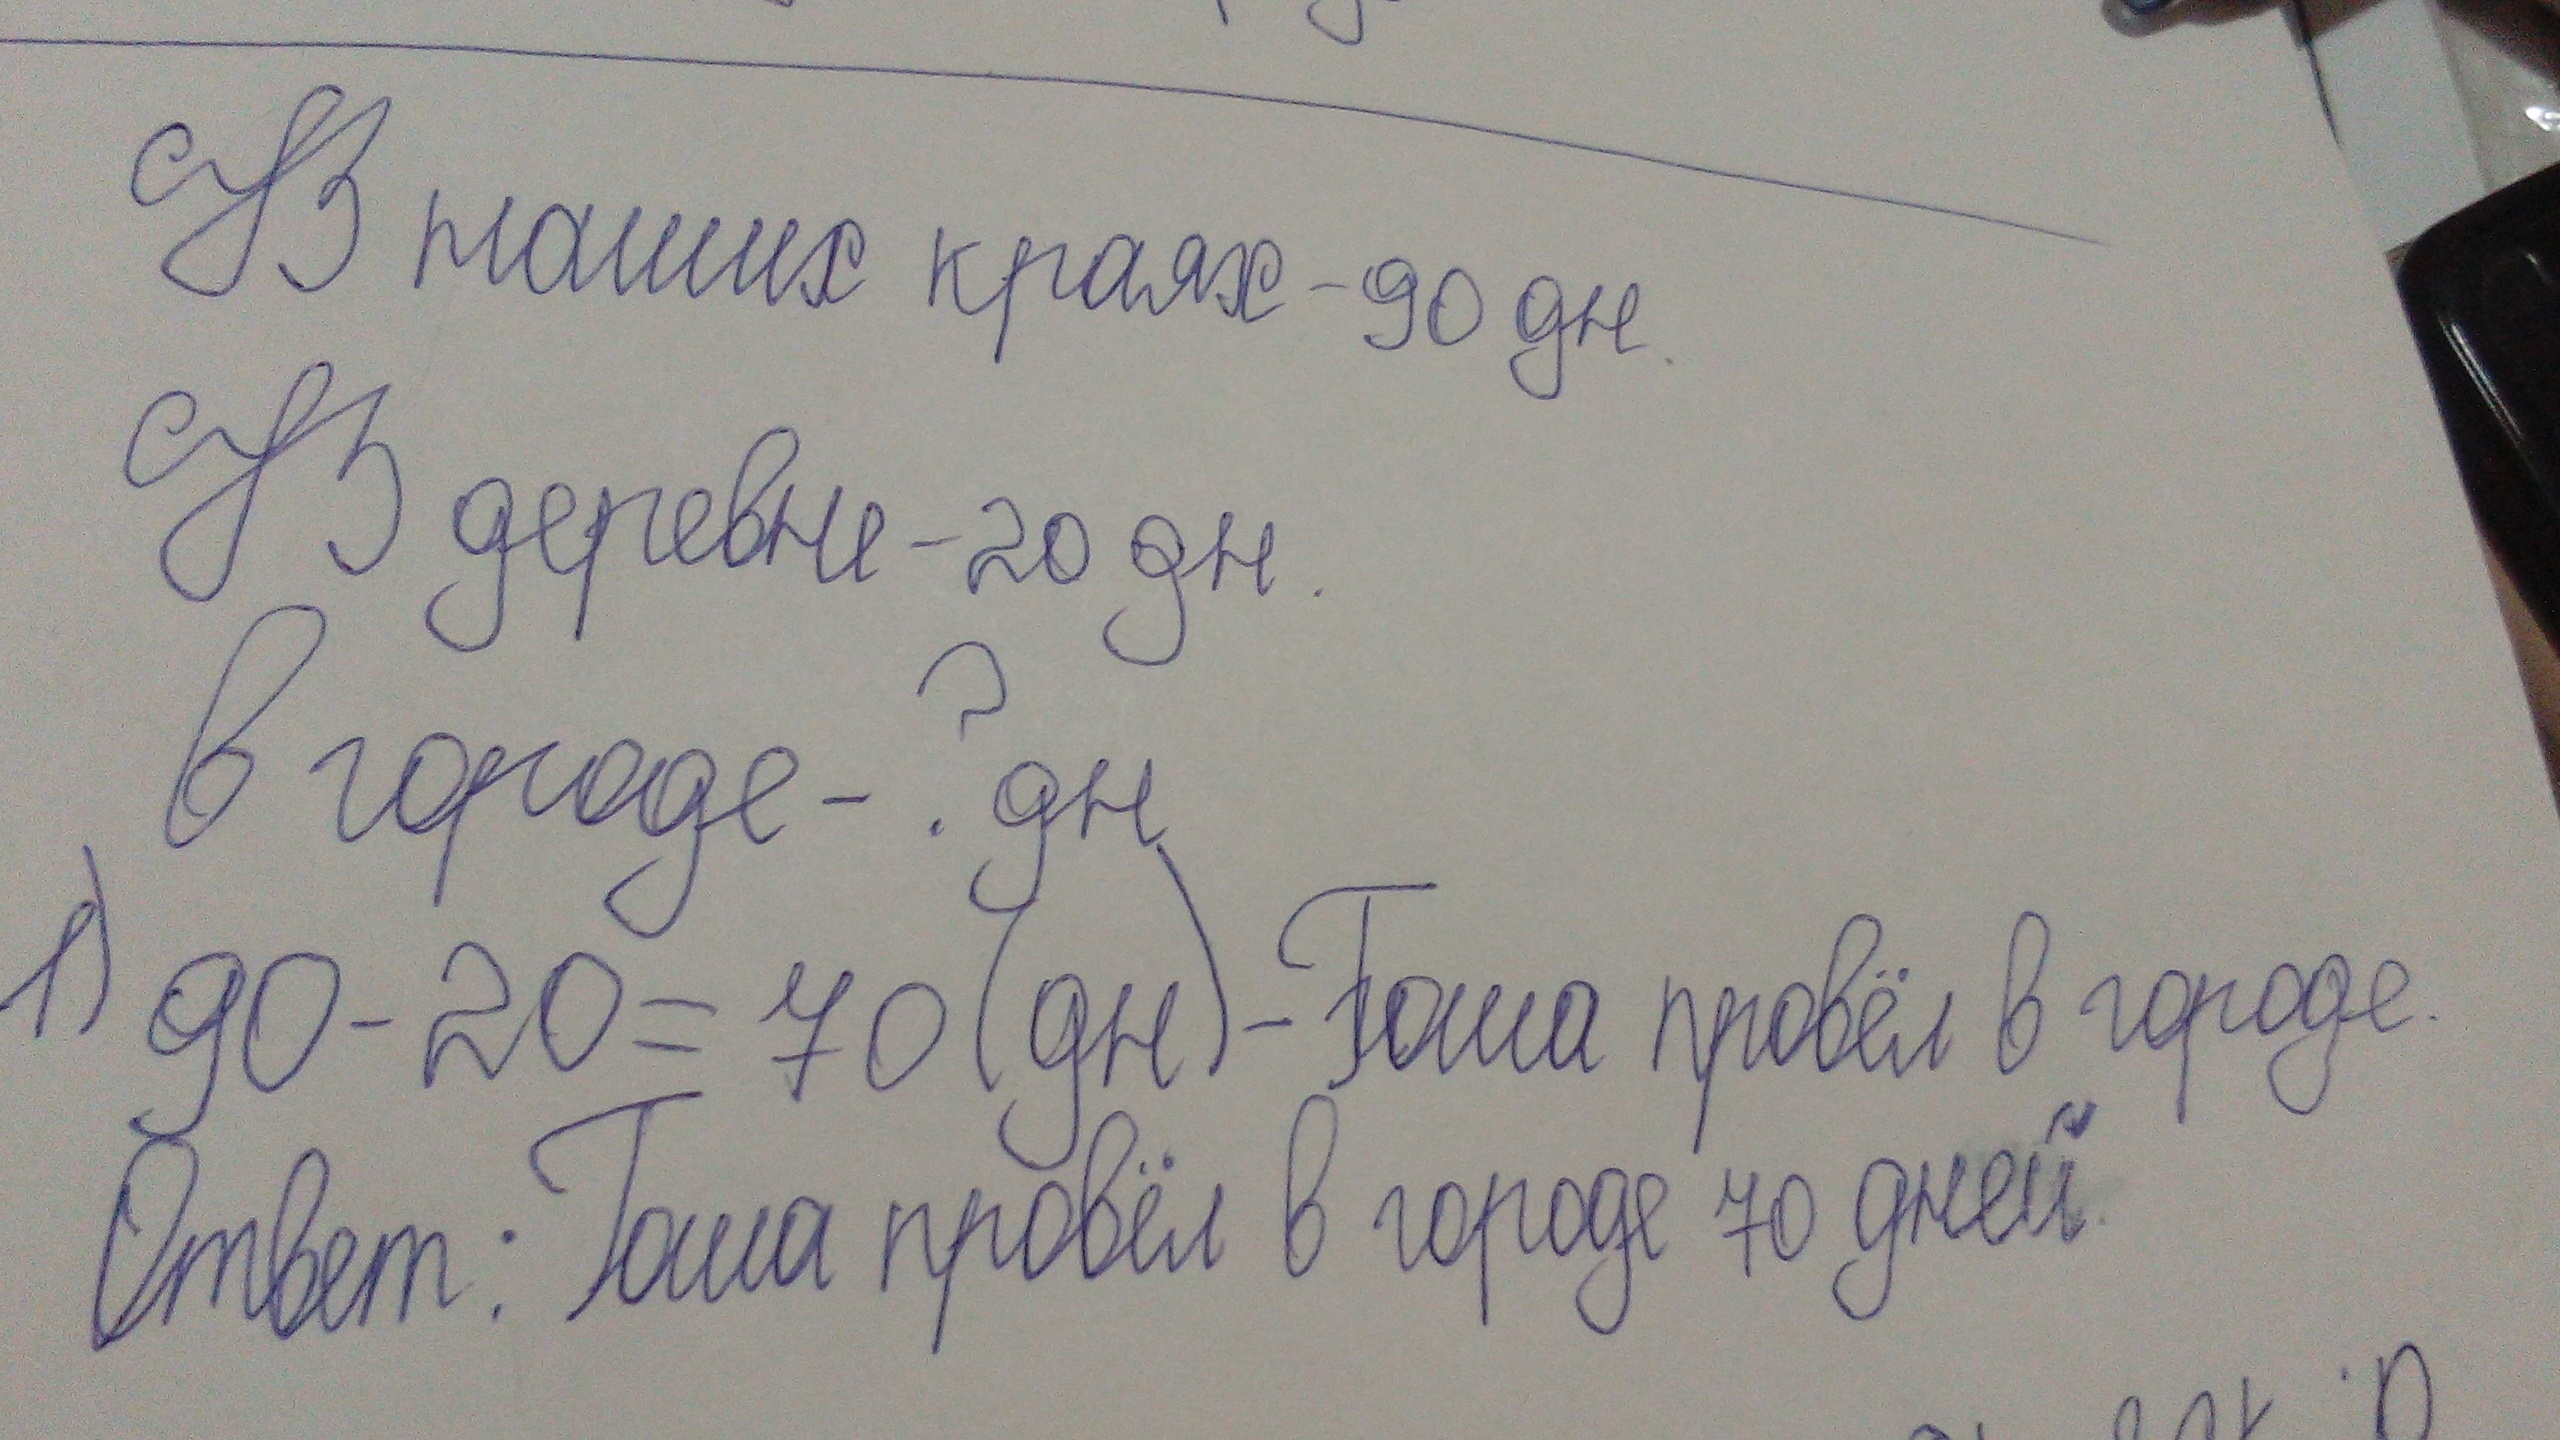 Из наших краях - 90 дн.
Из деревни - 20 дн.
В городе - ? дн
1) 90 - 20 = 70 (дн) - Гоша провёл в городе.
Ответ: Гоша провёл в городе 70 дней.